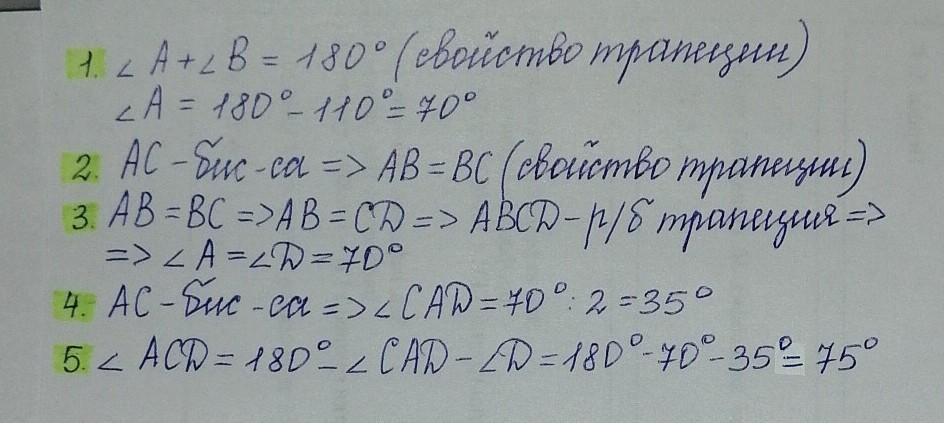 1. ∠ A + ∠ B = 180° (свойство трапеции)
∠ A = 180° - 110° = 70°
2. AC - бис-са => AB = BC (свойство трапеции)
3. AB = BC => AB = CD => ABCD - р/б трапеция =>
=> ∠ A = ∠ D = 70°
4. AC - бис-са => ∠ CAD = 70° : 2 = 35°
5. ∠ ACD = 180° - ∠ CAD - ∠ D = 180° - 70° - 35° = 75°